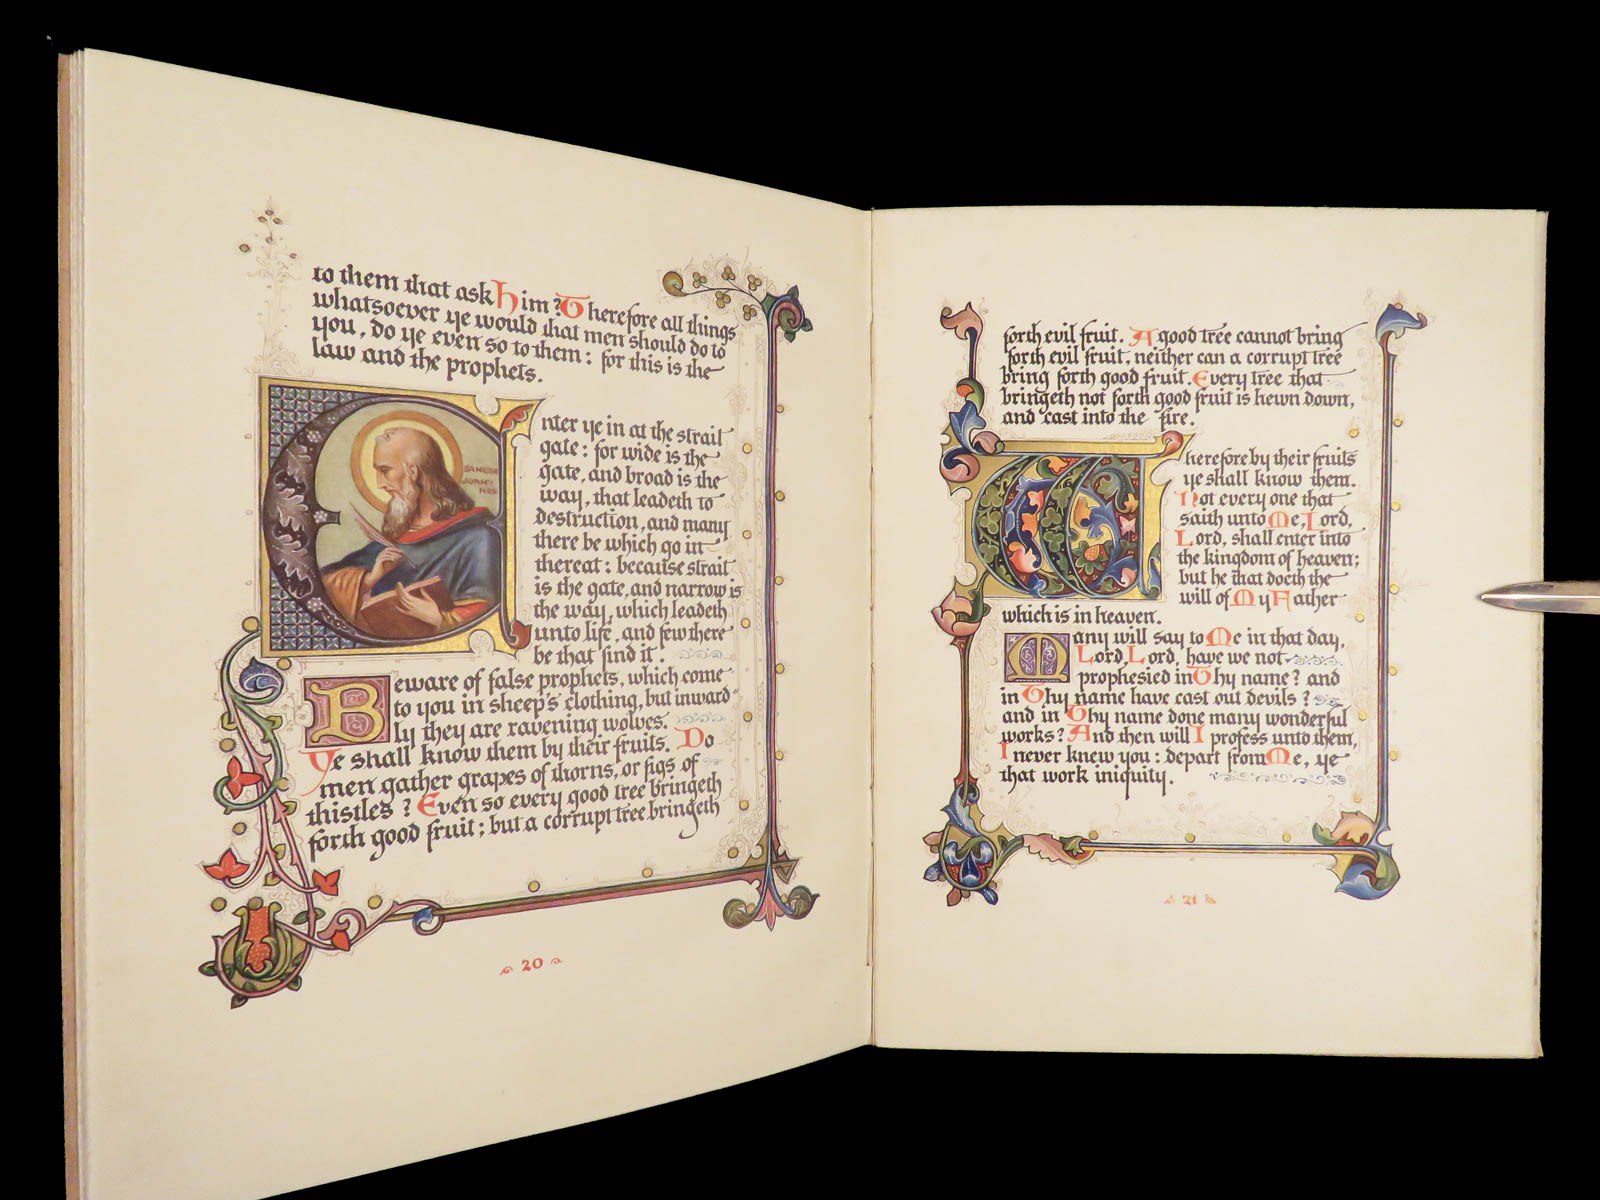 to them that ask Him? Therefore all things
whatsoever ye would that men should do to
you, do ye even so to them: for this is the
law and the prophets.
Enter ye in at the strait
gate: for wide is the
gate, and broad is the
way, that leadeth to
destruction, and many
there be which go in
thereat: because strait
is the gate, and narrow is
the way, which leadeth
unto life, and few there
be that find it.
SANCTUS
JOHAN
NES
Beware of false prophets, which come
to you in sheep's clothing, but inward
ly they are ravening wolves.
Ye shall know them by their fruits. Do
men gather grapes of thorns, or figs of
thistles? Even so every good tree bringeth
forth good fruit; but a corrupt tree bringeth
20
forth evil fruit. A good tree cannot bring
forth evil fruit, neither can a corrupt tree
bring forth good fruit. Every tree that
bringeth not forth good fruit is hewn down,
and cast into the fire.
Wherefore by their fruits
ye shall know them.
Not every one that
saith unto Me, Lord,
Lord, shall enter into
the kingdom of heaven;
but he that doeth the
will of My Father
which is in heaven.
Many will say to Me in that day,
Lord, Lord, have we not
prophesied in Thy name? and
in Thy name have cast out devils?
and in Thy name done many wonderful
works? And then will I profess unto them,
I never knew you: depart from Me, ye
that work iniquity.
21